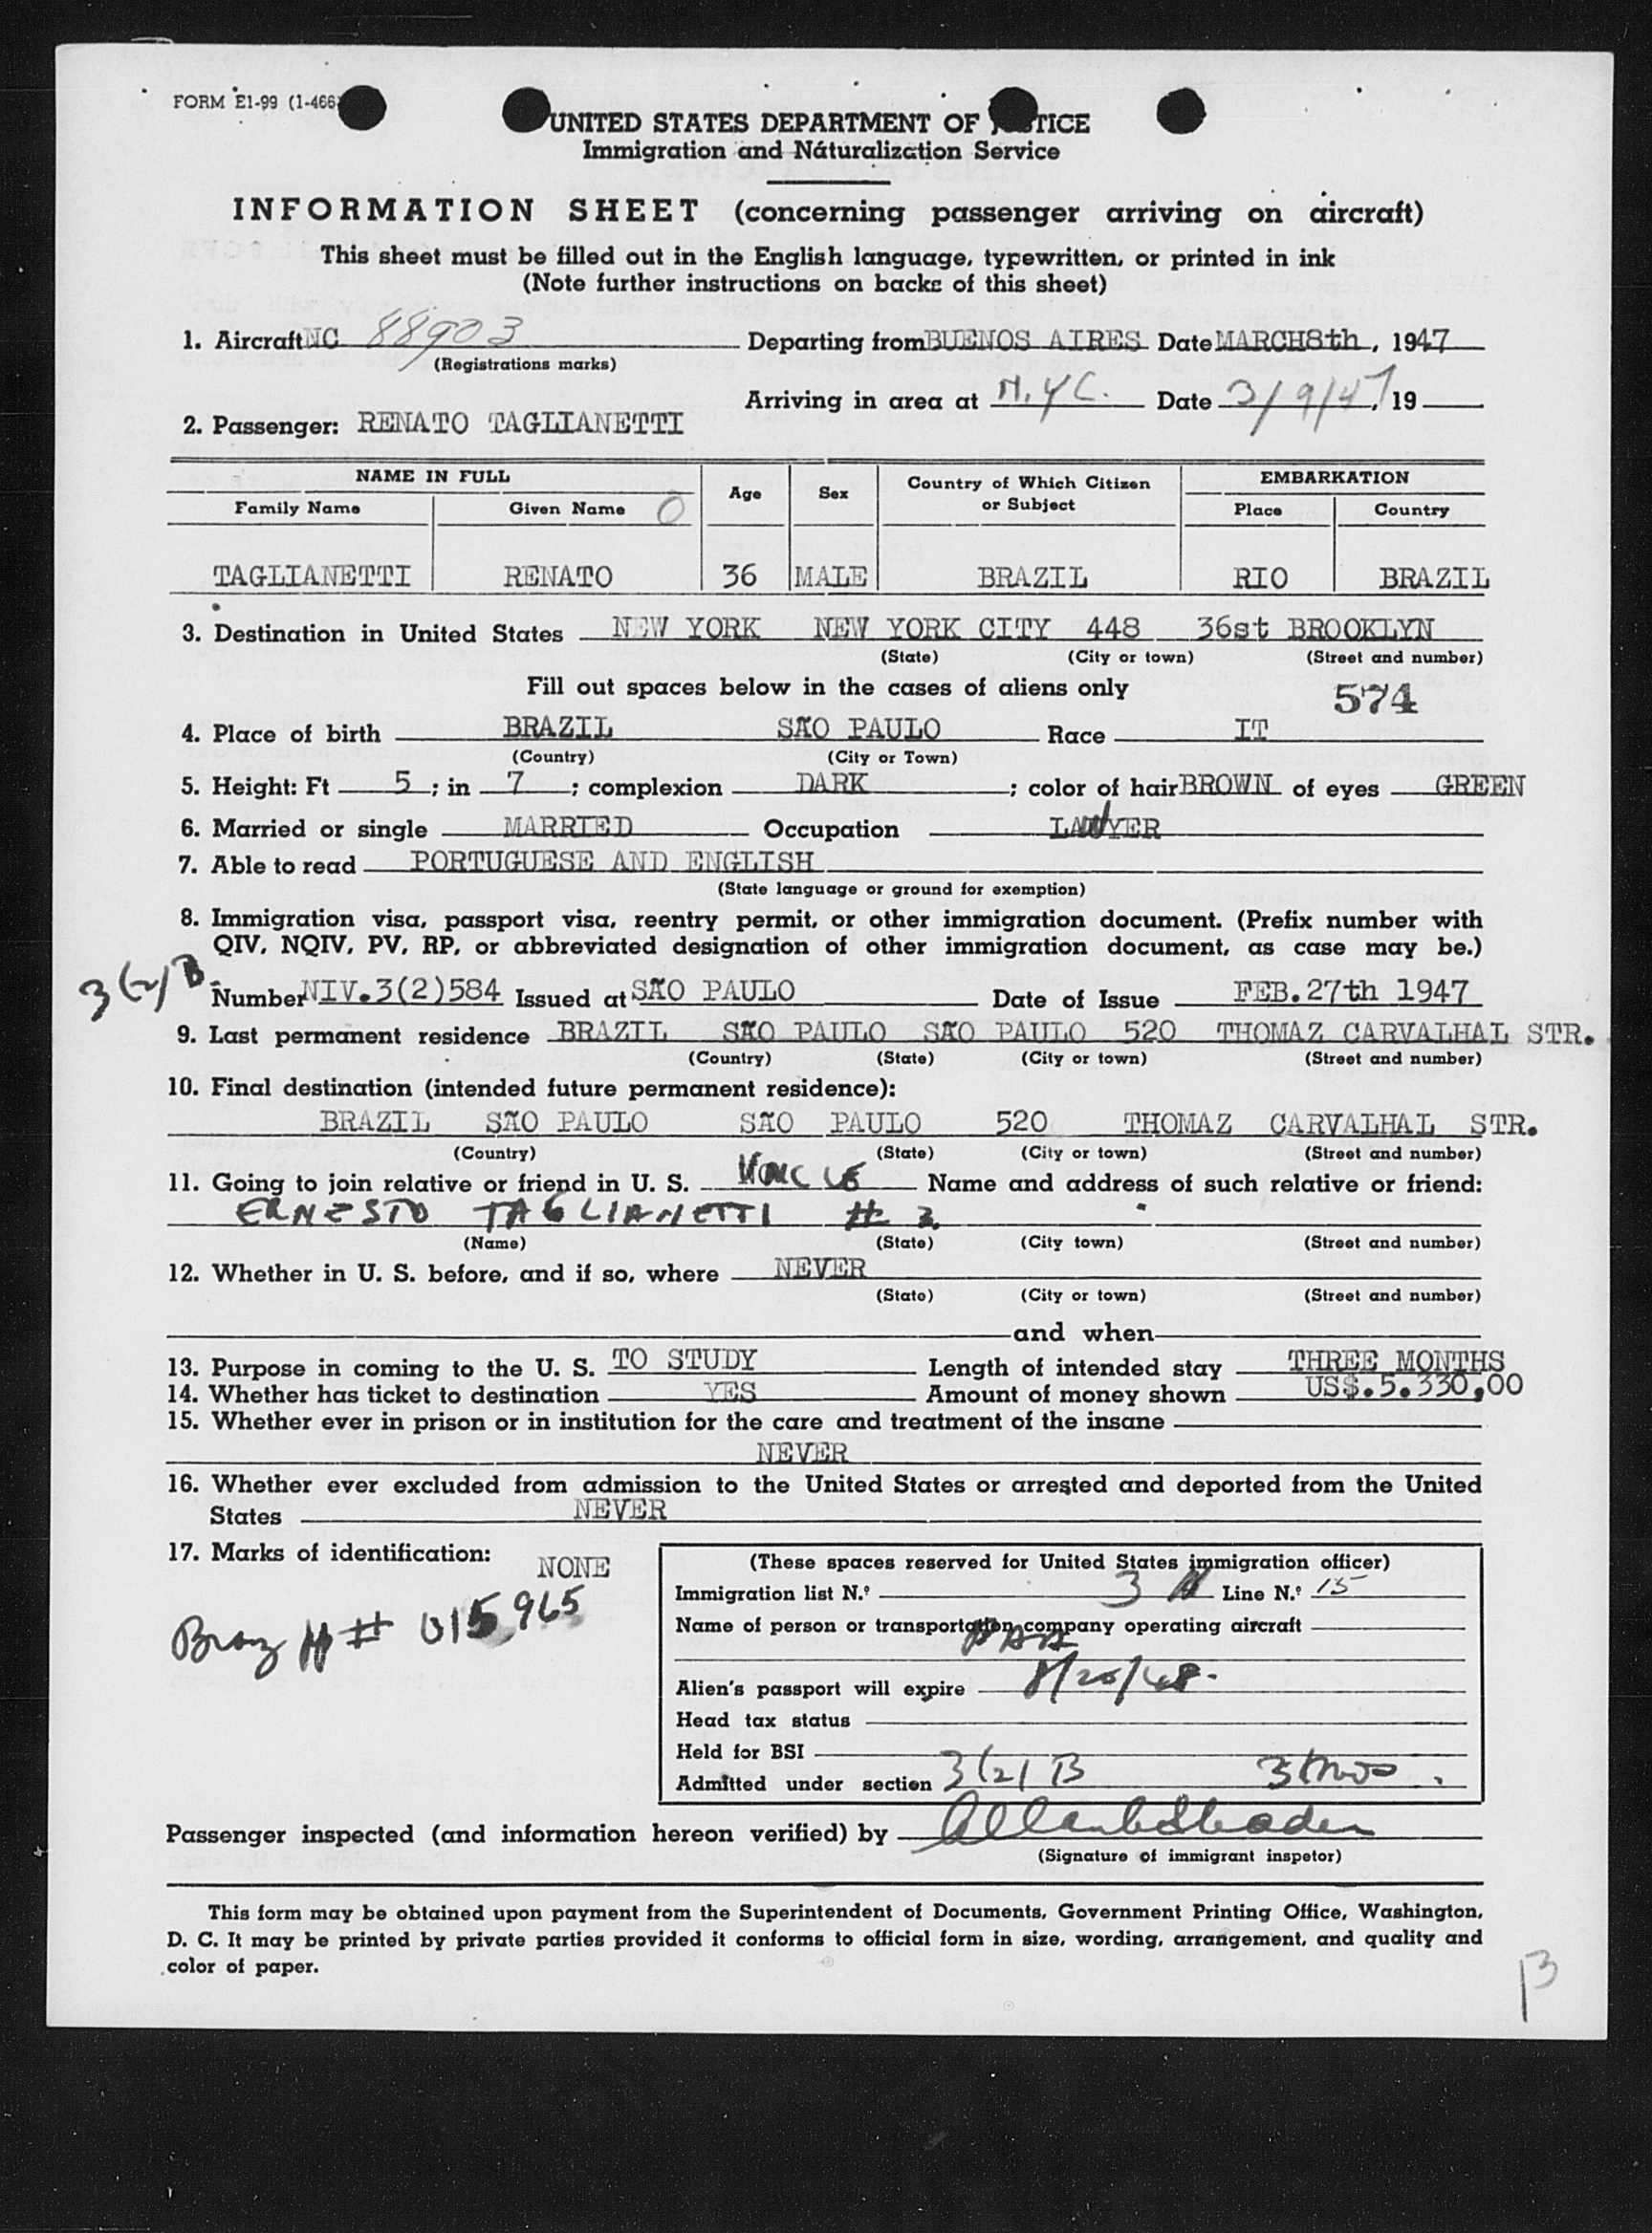 FORM E1-99 (1-466)
UNITED STATES DEPARTMENT OF JUSTICE
Immigration and Naturalization Service
INFORMATION SHEET (concerning passenger arriving on aircraft)
This sheet must be filled out in the English language, typewritten, or printed in ink
(Note further instructions on backs of this sheet)
1. Aircraft NC 88903 Departing from BUENOS AIRES Date MARCH8th, 1947
(Registrations marks)
Arriving in area at N.Y.C. Date 3/9/47, 19
2. Passenger: RENATO TAGLIANETTI
NAME IN FULL Age Sex Country of Which Citizen or Subject EMBARKATION
Family Name Given Name O Place Country
TAGLIANETTI RENATO 36 MALE BRAZIL RIO BRAZIL
3. Destination in United States NEW YORK NEW YORK CITY 448 36st BROOKLYN
(State) (City or town) (Street and number)
Fill out spaces below in the cases of aliens only 574
4. Place of birth BRAZIL SÃO PAULO Race IT
(Country) (City or Town)
5. Height: Ft 5 ; in 7 ; complexion DARK ; color of hair BROWN of eyes GREEN
6. Married or single MARRIED Occupation LAWYER
7. Able to read PORTUGUESE AND ENGLISH
(State language or ground for exemption)
8. Immigration visa, passport visa, reentry permit, or other immigration document. (Prefix number with
QIV, NQIV, PV, RP, or abbreviated designation of other immigration document, as case may be.)
3(2)B
Number NIV.3(2)584 Issued at SÃO PAULO Date of Issue FEB.27th 1947
9. Last permanent residence BRAZIL SÃO PAULO SÃO PAULO 520 THOMAZ CARVALHAL STR.
(Country) (State) (City or town) (Street and number)
10. Final destination (intended future permanent residence):
BRAZIL SÃO PAULO SÃO PAULO 520 THOMAZ CARVALHAL STR.
(Country) (State) (City or town) (Street and number)
11. Going to join relative or friend in U. S. UNCLE Name and address of such relative or friend:
ERNESTO TAGLIANETTI # 3.
(Name) (State) (City town) (Street and number)
12. Whether in U. S. before, and if so, where NEVER
(State) (City or town) (Street and number)
and when
13. Purpose in coming to the U. S. TO STUDY Length of intended stay THREE MONTHS
14. Whether has ticket to destination YES Amount of money shown US$.5.330,00
15. Whether ever in prison or in institution for the care and treatment of the insane
NEVER
16. Whether ever excluded from admission to the United States or arrested and deported from the United
States NEVER
17. Marks of identification: NONE
Braz PP # 015965
(These spaces reserved for United States immigration officer)
Immigration list N.º 3 Line N.º 15
Name of person or transportation company operating aircraft
PAA
Alien's passport will expire 8/20/48.
Head tax status
Held for BSI
Admitted under section 3(2) B 3 mos.
Passenger inspected (and information hereon verified) by
(Signature of immigrant inspetor)
This form may be obtained upon payment from the Superintendent of Documents, Government Printing Office, Washington,
D. C. It may be printed by private parties provided it conforms to official form in size, wording, arrangement, and quality and
color of paper.
13